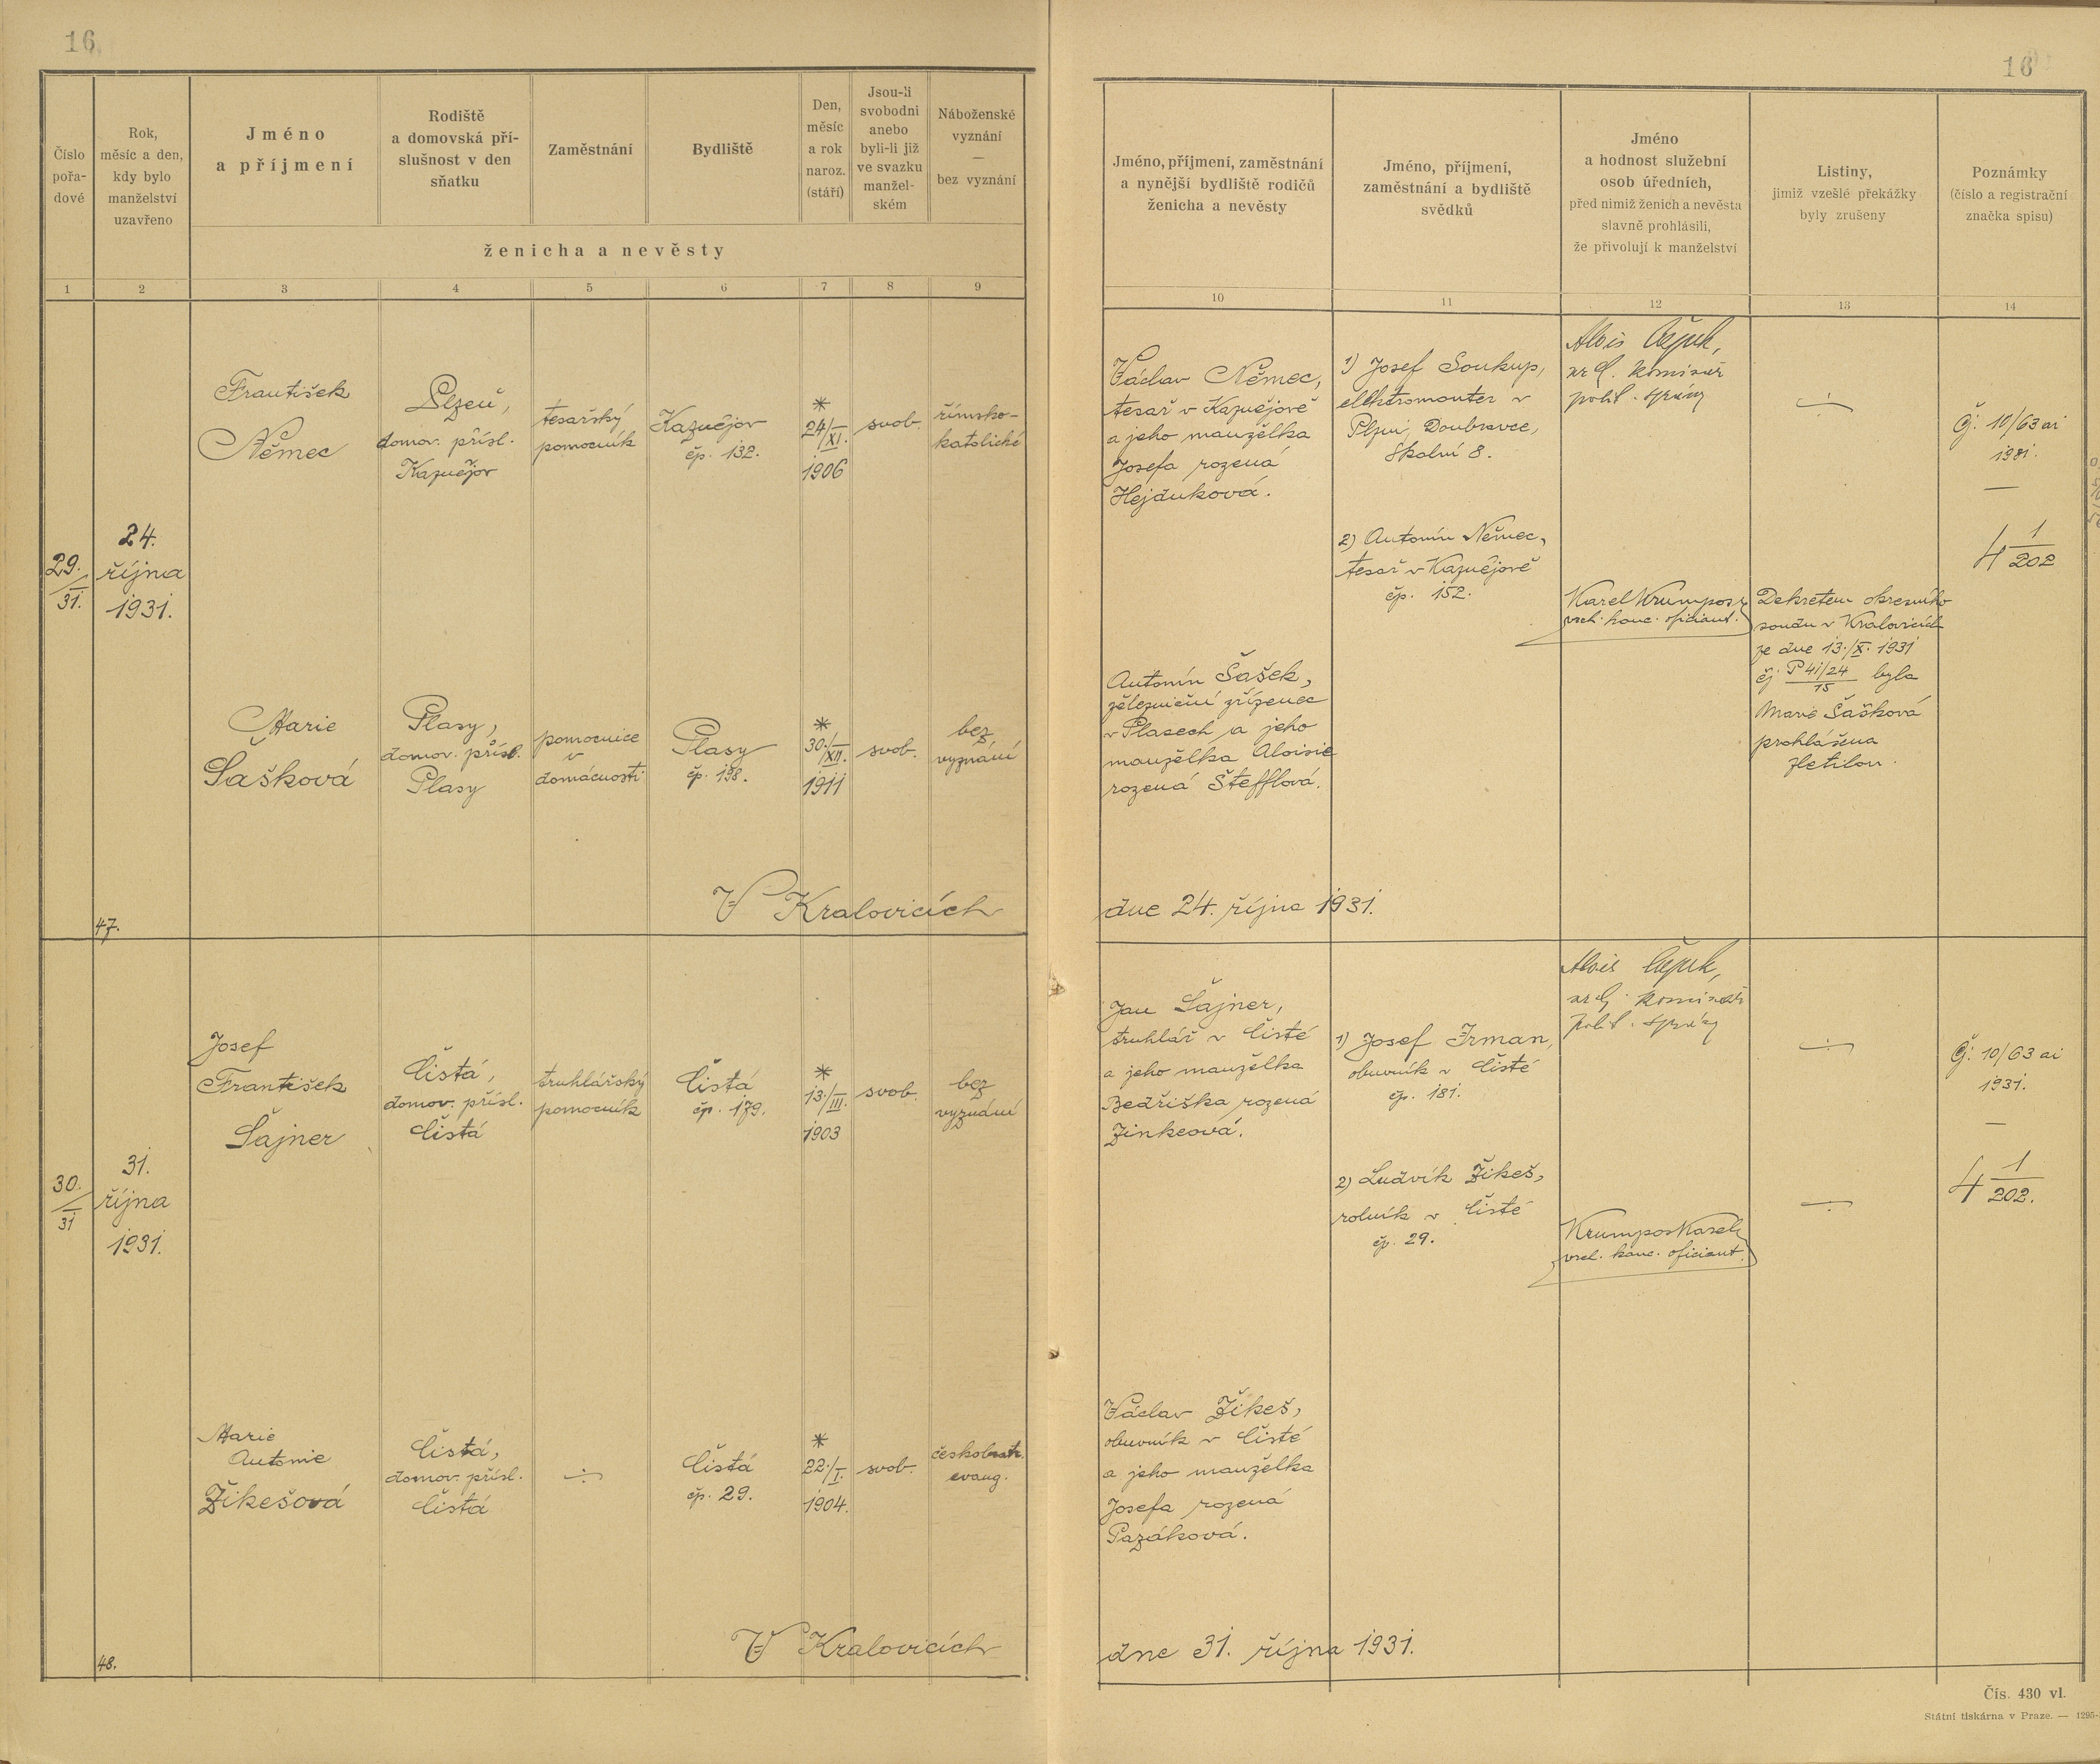 16
16
Číslo
pořa-
dové
Rok,
měsíc a den,
kdy bylo
manželství
uzavřeno
Jméno
a příjmení
Rodiště
a domovská pří-
slušnost v den
sňatku
Zaměstnání
Bydliště
Den,
měsíc
a rok
naroz.
(stáří)
Jsou-li
svobodni
anebo
byli-li již
ve svazku
manžel-
ském
Náboženské
vyznání
—
bez vyznání
ženicha a nevěsty
Jméno, příjmení, zaměstnání
a nynější bydliště rodičů
ženicha a nevěsty
Jméno, příjmení,
zaměstnání a bydliště
svědků
Jméno
a hodnost služební
osob úředních,
před nimiž ženich a nevěsta
slavně prohlásili,
že přivolují k manželství
Listiny,
jimiž vzešlé překážky
byly zrušeny
Poznámky
(číslo a registrační
značka spisu)
1 2 3 4 5 6 7 8 9 10 11 12 13 14
29.
31.
24.
října
1931.
František
Němec
Plzeň,
domov. přísl.
Kaznějov
tesařský
pomocník
Kaznějov
čp. 132.
*
24/XI.
1906
svob.
římsko-
katolické
Václav Němec,
tesař v Kaznějově
a jeho manželka
Josefa rozená
Hejduková.
1) Josef Soukup,
elektromonter v
Plzni, Doubravce,
Školní 8.
2) Antonín Němec,
tesař v Kaznějově
čp. 152.
Alois
komisař
polit. správy
Karel Krumpos
kanc. oficiant.
÷
Čj. 10/63 ai
1931.
—
4 1/202
Marie
Šašková
Plasy,
domov. přísl.
Plasy
pomocnice
v
domácnosti
Plasy
čp. 198.
*
30./XII.
1911
svob.
bez
vyznání
Antonín Šašek,
železniční zřízenec
v Plasech a jeho
manželka Aloisie
rozená Štefflová.
Dekretem okresního
soudu v Kralovicích
ze dne 13./X. 1931
čj. P 41/24 byla
15
Marie Šašková
prohlášena
zletilou.
V Kralovicích dne 24. října 1931.
47.
30.
31
31.
října
1931.
Josef
František
Šajner
Čistá,
domov. přísl.
Čistá
truhlářský
pomocník
Čistá
čp. 179.
*
13./III.
1903
svob.
bez
vyznání
Jan Šajner,
truhlář v Čisté
a jeho manželka
Bedřiška rozená
Zinkeová.
1) Josef Irman,
obuvník v Čisté
čp. 181.
2) Ludvík Žikeš,
rolník v Čisté
čp. 29.
Alois
komisař
polit. správy
Krumpos Karel
kanc. oficiant.
÷
÷
Čj. 10/63 ai
1931.
—
4 1/202.
Marie
Antonie
Žikešová
Čistá,
domov. přísl.
Čistá
÷
Čistá
čp. 29.
*
22./I.
1904.
svob.
českobratr.
evang.
Václav Žikeš,
obuvník v Čisté
a jeho manželka
Josefa rozená
Pazáková.
V Kralovicích dne 31. října 1931.
48.
Čís. 430 vl.
Státní tiskárna v Praze. — 1295-